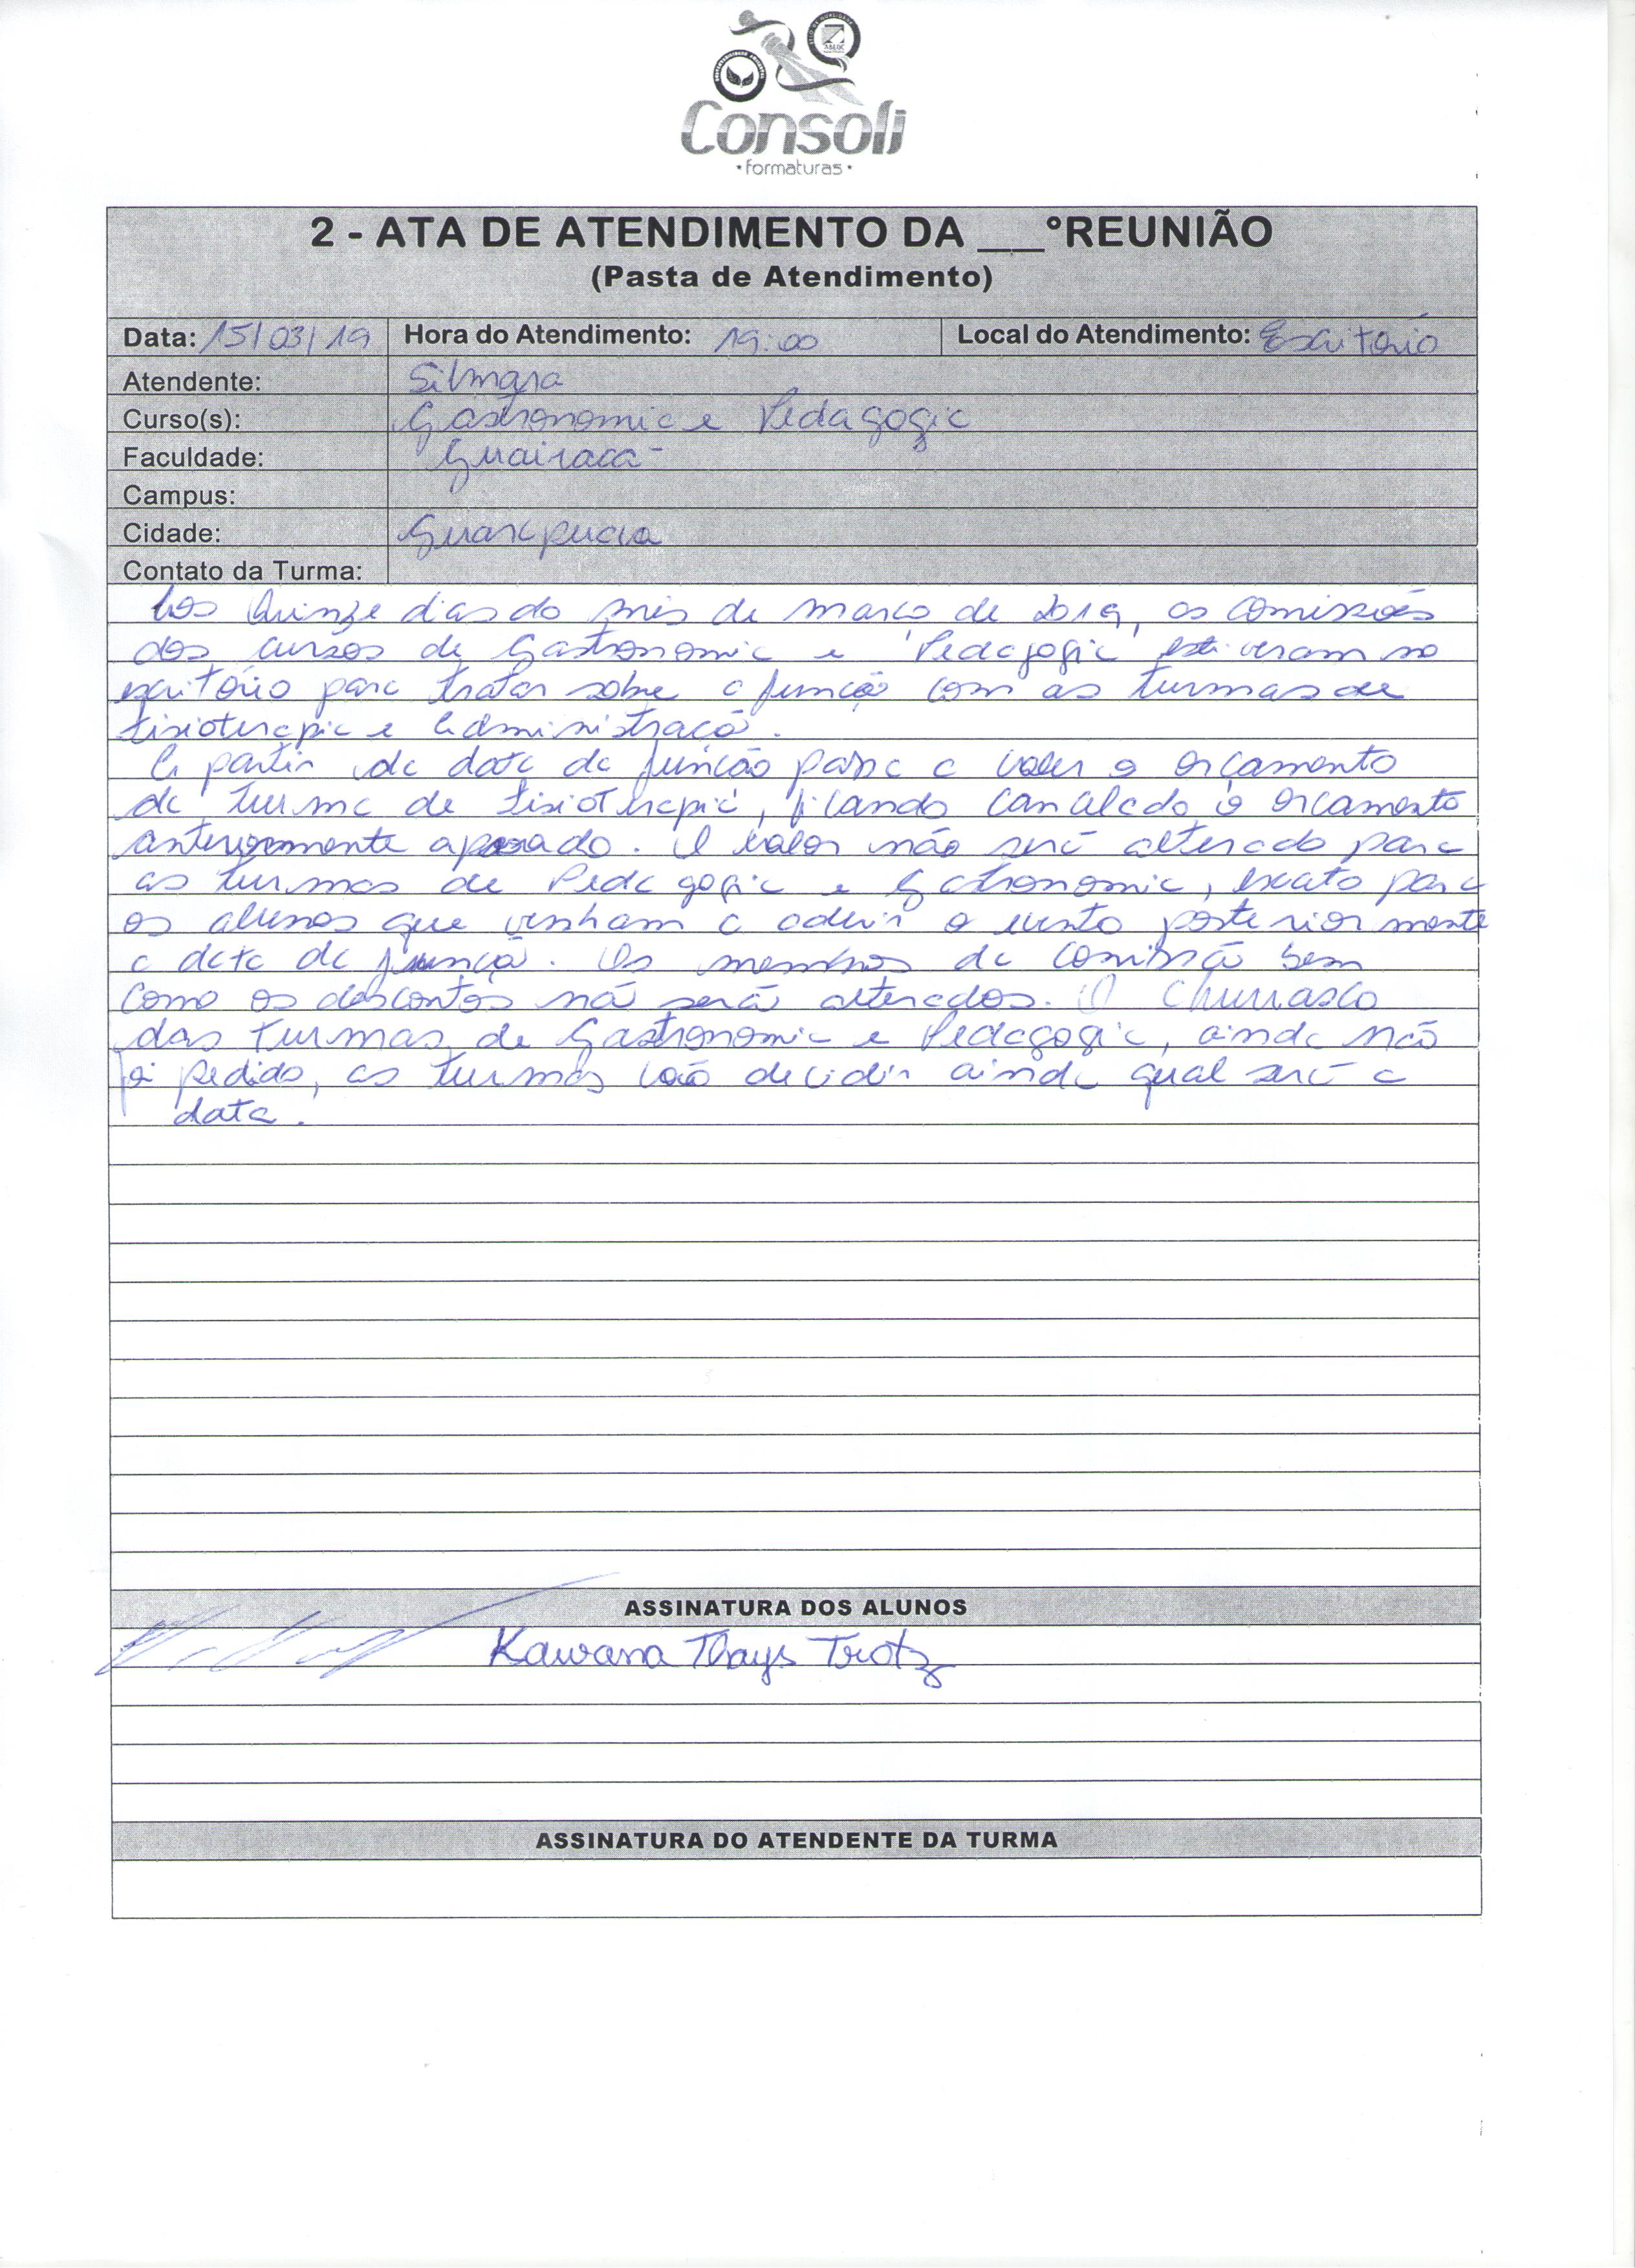 Consoli
•formaturas•
2 - ATA DE ATENDIMENTO DA ___°REUNIÃO
(Pasta de Atendimento)
Data: 15/03/19 Hora do Atendimento: 19:00 Local do Atendimento: Escritório
Atendente: Silmara
Curso(s): Gastronomia e Pedagogia
Faculdade: Guairacá
Campus:
Cidade: Guarapuava
Contato da Turma:
Aos Quinze dias do mês de março de 2019, as comissões
dos cursos de Gastronomia e Pedagogia estiveram no
escritório para tratar sobre a junção com as turmas de
Fisioterapia e Administração.
A partir da data da junção passa a valer o orçamento
da turma de Fisioterapia, ficando cancelado o orçamento
anteriormente aprovado. O valor não será alterado para
as turmas de Pedagogia e Gastronomia, exceto para
os alunos que venham a aderir o evento posteriormente
a data da junção. Os membros da comissão bem
como os descontos não serão alterados. O Churrasco
das turmas de Gastronomia e Pedagogia, ainda não
foi pedido, as turmas vão decidir ainda qual será a
data.
ASSINATURA DOS ALUNOS
Kawana Thays Trotz
ASSINATURA DO ATENDENTE DA TURMA